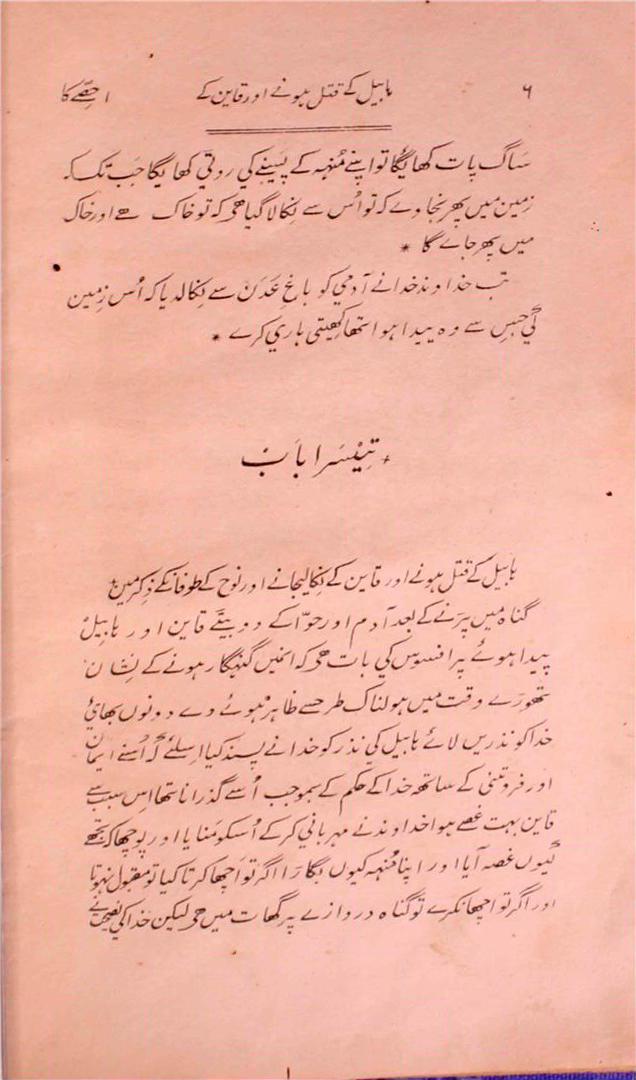 ۶ ہابیل کے قتل ہونے اور قاین کے ۱ حصّے کا
ساگ پات کھایگا تو اپنے مُنہہ کے پسینے کی روٹی کھایگا جب تک کہ
زمین میں پھر نجاوے کہ تو اُس سے نکالا گیا ھی کہ تو خاک ھے اور خاک
میں پھر جاے گا *
تب خداوند خدا نے آدمی کو باغِ عَدَن سے نکالدیا کہ اُس زمین
کی جس سے وہ پیدا ہوا تھا کھیتی باری کرے *
* تیسرا باب
ہابیل کے قتل ہونے اور قاین کے نکالیجانے اور نوح کے طوفانکے ذکر مین *
گناہ میں پرنے کے بعد آدم اور حوّا کے دو بیتّے قاین اور ہابیل
پیدا ہوئے پر افسوس کی بات ھی کہ انمیں گنہگار ہونے کے نشان
تھورے وقت میں ہولناک طرحسے ظاہر ہوئے وے دونوں بھائ
خدا کو نذریں لائے ہابیل کی نذر کو خدا نے پسند کیا اسلئے کہ اُسنے ایمان
اور فروتنی کے ساتھہ خدا کے حکم کے بموجب اُسے گذرانا تھا اس سبب سے
قاین بہت غصے ہوا خداوند نے مہربانی کرکے اُسکو منایا اور پوچھا کہ تجھے
کیوں غصہ آیا اور اپنا مُنہہ کیوں بگارَا اگر تو اچھا کرتا کیا تو مقبول نہوتا
اور اگر تو اچھا نکرے تو گناہ دروازے پر گھات میں ھی لیکن خدا کی